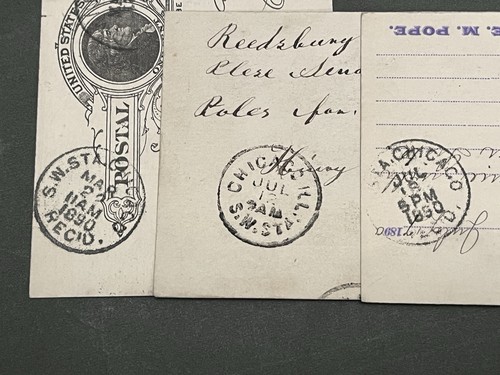 UNITED STATES
POSTAL
S.W. STA.
MAR
11 AM
1890
REC'D.
Reedsburg
Plese Send
Poles for
CHICAGO, ILL.
JUL
AM
S.W. STA.
E. M. POPE.
STA. CHICAGO
JUL
5 PM
1890
REC'D.